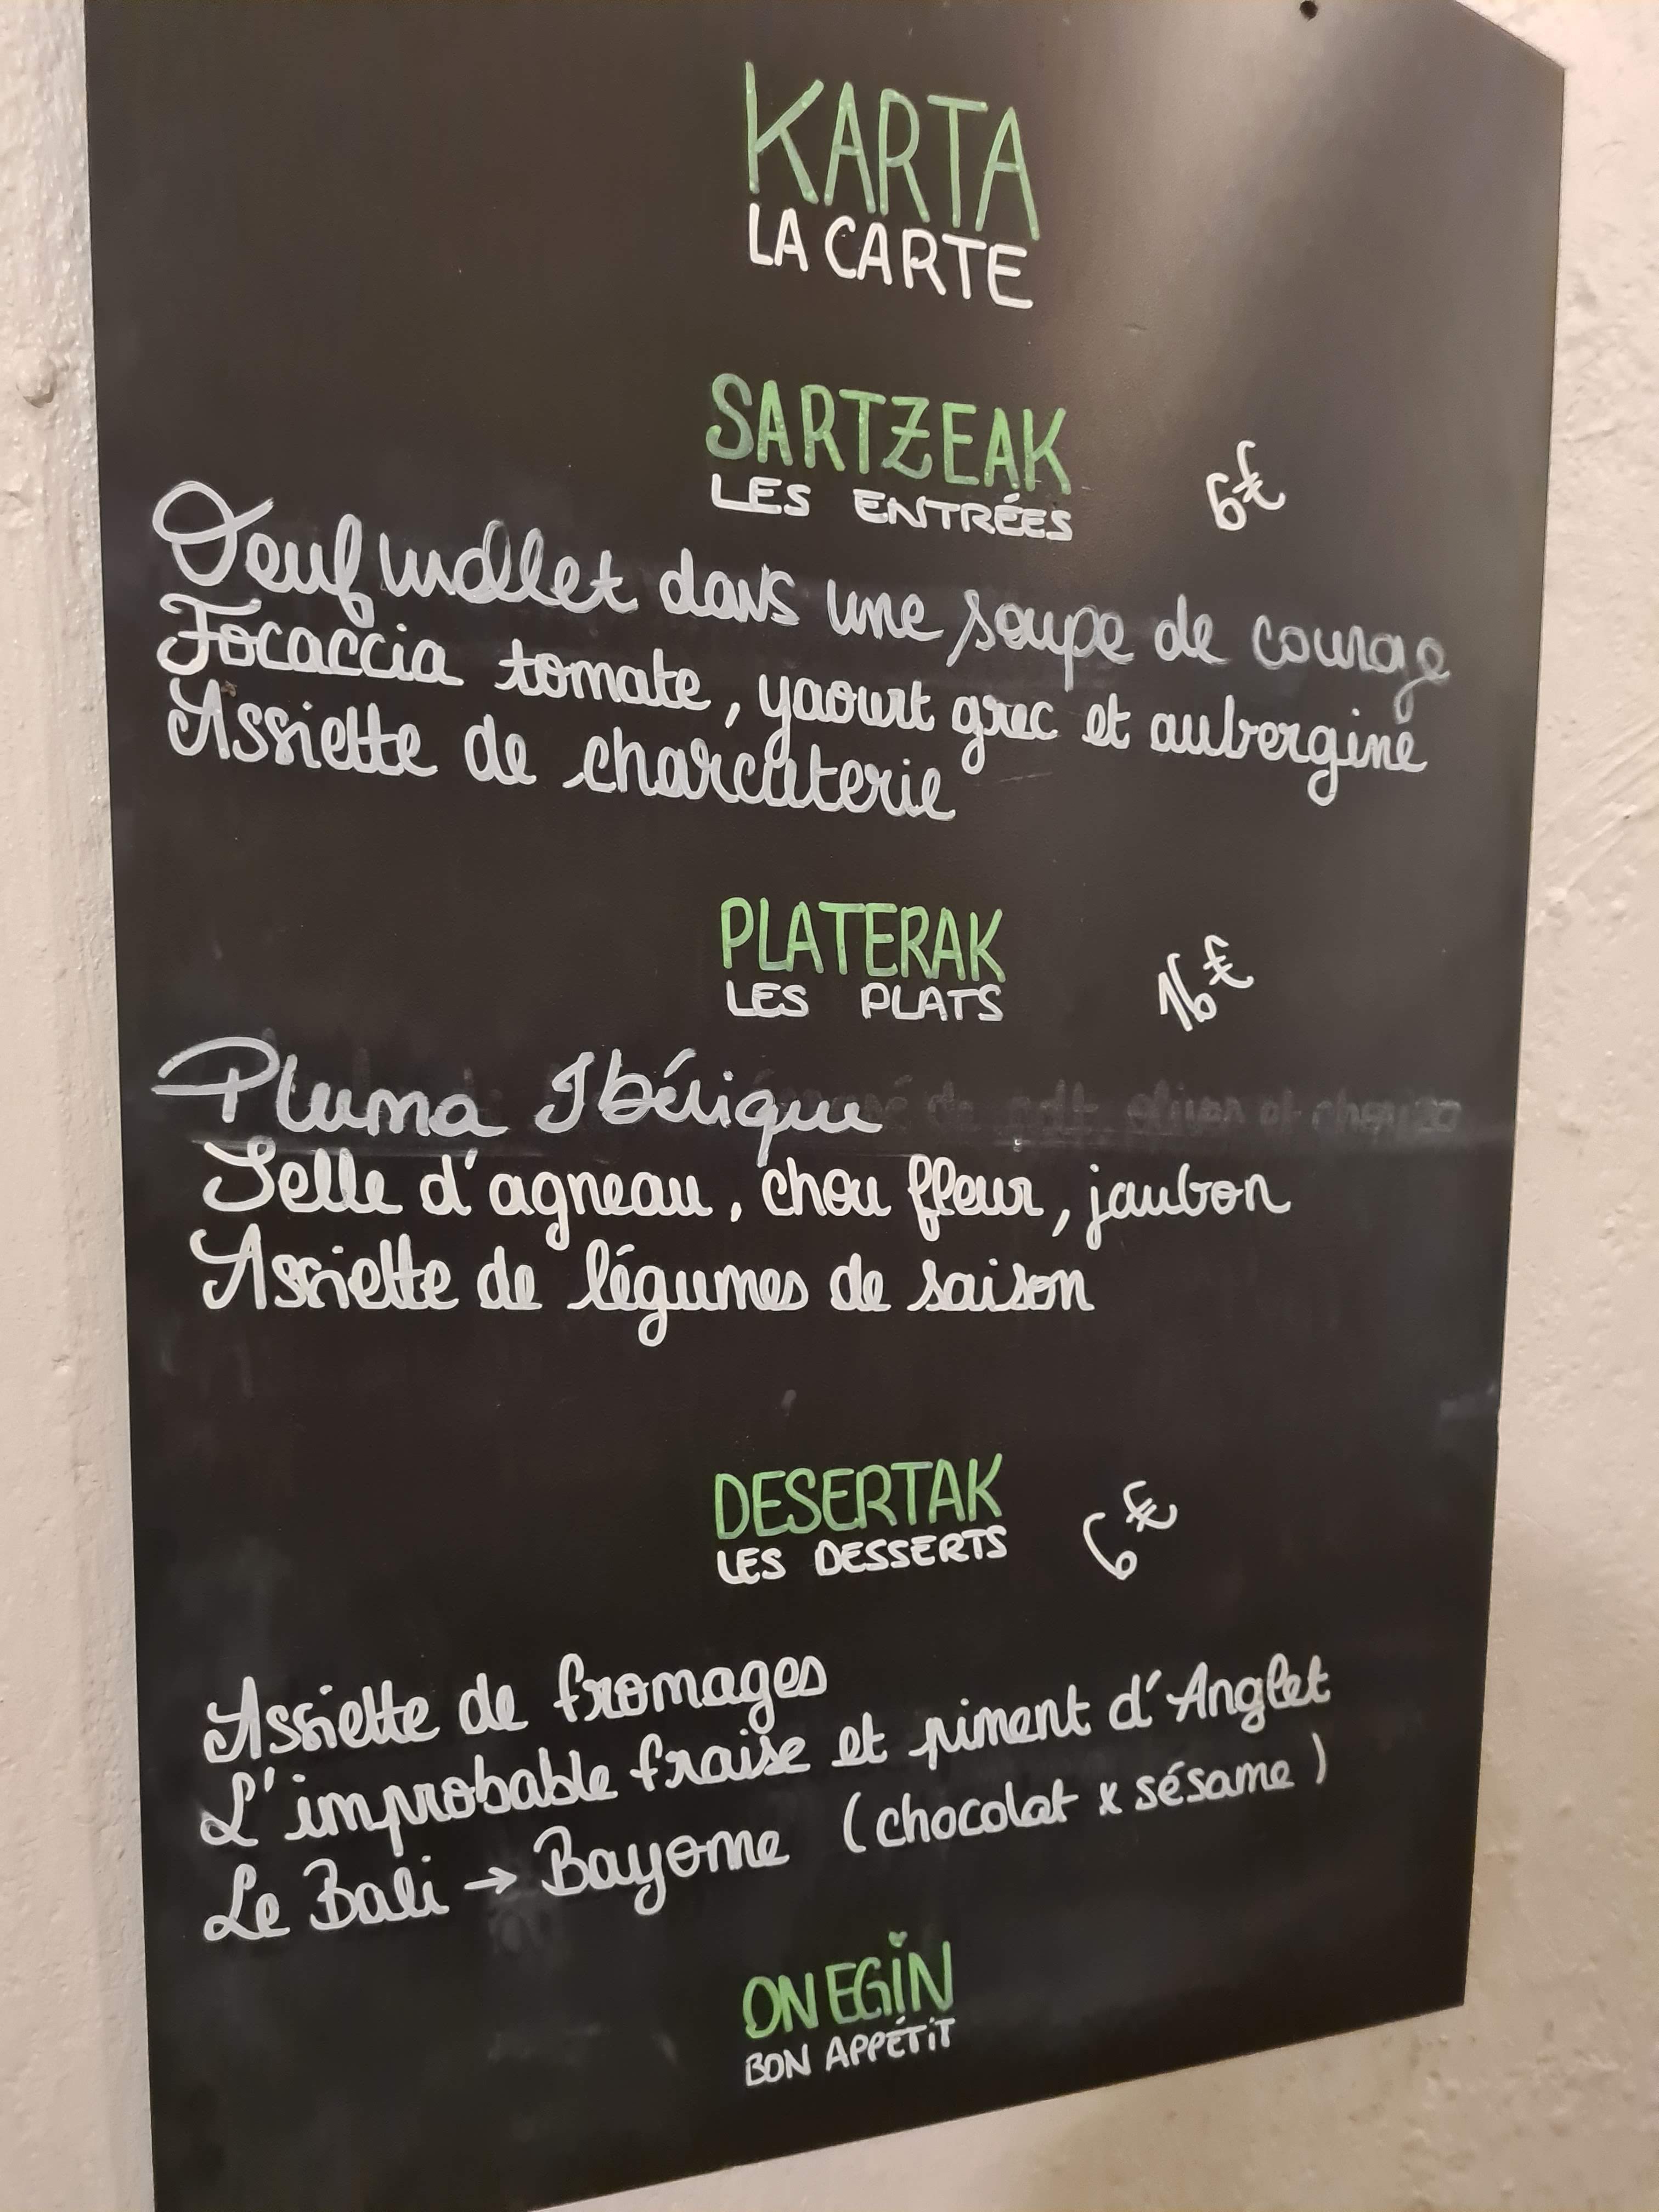 KARTA
LA CARTE
SARTZEAK
LES ENTRÉES
6€
Oeuf mollet dans une soupe de courge
Focaccia tomate, yaourt grec et aubergine
Assiette de charcuterie
PLATERAK
LES PLATS
16€
Pluma Ibérique
Selle d'agneau, chou fleur, jambon
Assiette de légumes de saison
DESERTAK
LES DESSERTS
6€
Assiette de fromages
L'improbable fraise et piment d'Anglet
Le Bali → Bayonne (chocolat x sésame)
ON EGIN
BON APPÉTIT